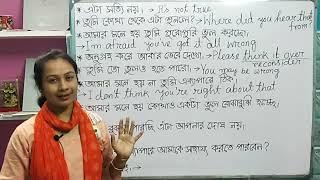 এটা সত্যি নয়। - It's not true
তুমি কোথা থেকে এটা শুনলে? - Where did you hear that from?
আমার মনে হয় তুমি পুরোপুরি ভুল করছো।
- I'm afraid you've got it all wrong
অনুগ্রহ করে আবার ভেবে দেখো। - Please think it over
reconsider
তুমি তো ভুলও হতে পারো। - You may be wrong
আমার মনে হয় না তুমি এব্যাপারে ঠিক।
- I don't think you're right about that
আমার মনে হয় কোথাও একটা ভুল বোঝাবুঝি হয়েছে।
পারছি এটা আপনার দোষ নয়।
ব্যাপারে আমাকে সাহায্য করতে পারবেন?